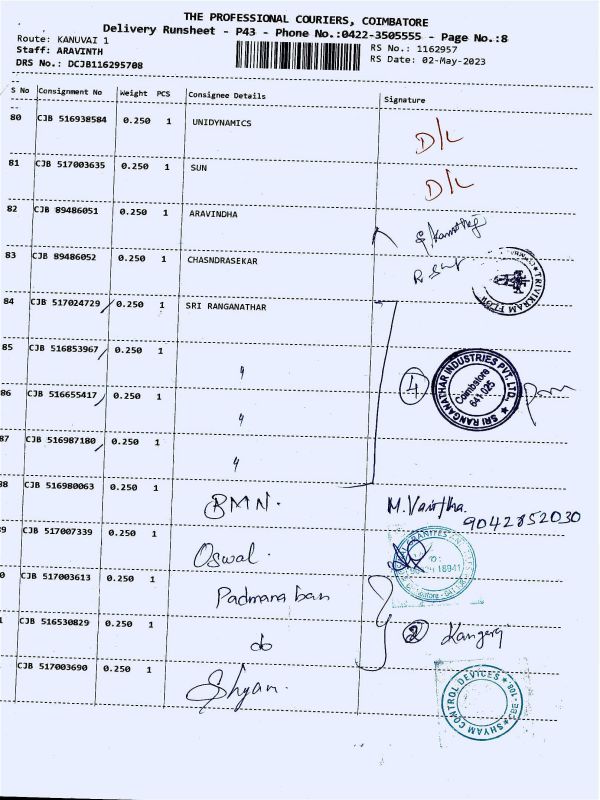 THE PROFESSIONAL COURIERS, COIMBATORE
Delivery Runsheet - P43 - Phone No.:0422-3505555 - Page No.:8
Route: KANUVAI 1
RS No.: 1162957
Staff: ARAVINTH
RS Date: 02-May-2023
DRS No.: DCJB116295708
S No Consignment No Weight PCS Consignee Details Signature
80 CJB 516938584 0.250 1 UNIDYNAMICS D/L
81 CJB 517003635 0.250 1 SUN D/L
82 CJB 89486051 0.250 1 ARAVINDHA
83 CJB 89486052 0.250 1 CHASNDRASEKAR
TRIVIKRAM
84 CJB 517024729 0.250 1 SRI RANGANATHAR
85 CJB 516853967 0.250 1 "
86 CJB 516655417 0.250 1 " 4
SRI RANGANATHAR INDUSTRIES PVT. LTD.
Coimbatore
641 025
87 CJB 516987180 0.250 1 "
88 CJB 516980063 0.250 1 BMN. M. Vairtha.
9042852030
9 CJB 517007339 0.250 1 Oswal.
0 CJB 517003613 0.250 1 Padmanaban
1 CJB 516530829 0.250 1 do 2 Kangeraj
CJB 517003690 0.250 1 Shyam.
SHYAM CONTROL DEVICES
CBE - 108.